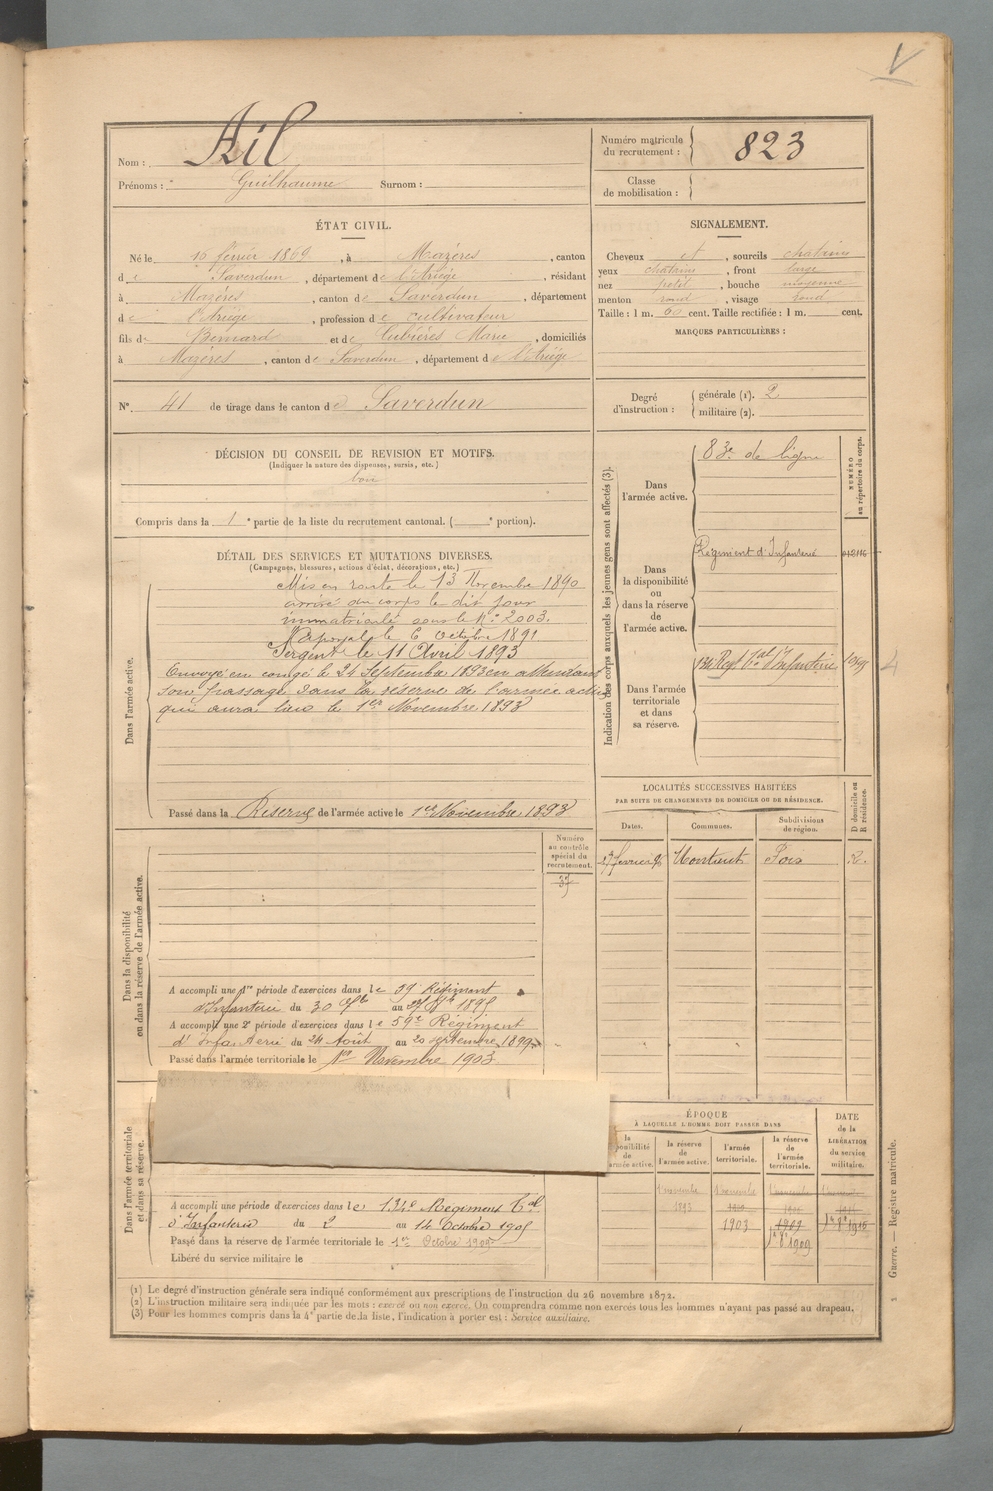 V
Nom : Ail
Prénoms : Guilhaume Surnom :
Numéro matricule du recrutement : 823
Classe de mobilisation :
ÉTAT CIVIL.
Né le 16 février 1869, à Mazères, canton
de Saverdun, département de l'Ariège, résidant
à Mazères, canton de Saverdun, département
de l'Ariège, profession de cultivateur
fils de Bernard et de Cubières Marie, domiciliés
à Mazères, canton de Saverdun, département de l'Ariège
N° 41 de tirage dans le canton de Saverdun
SIGNALEMENT.
Cheveux et, sourcils chatains
yeux chatains, front large
nez petit, bouche moyenne
menton rond, visage rond
Taille : 1 m. 60 cent. Taille rectifiée : 1 m. cent.
MARQUES PARTICULIÈRES :
Degré d'instruction : générale (1). 2
militaire (2).
DÉCISION DU CONSEIL DE REVISION ET MOTIFS.
(Indiquer la nature des dispenses, sursis, etc.)
bon
Compris dans la 1e partie de la liste du recrutement cantonal. ( e portion).
DÉTAIL DES SERVICES ET MUTATIONS DIVERSES.
(Campagnes, blessures, actions d'éclat, décorations, etc.)
Dans l'armée active.
Mis en route le 13 Novembre 1890
arrivé au corps le dit jour
immatriculé sous le N° 2003.
Caporal le 6 Octobre 1891
Sergent le 11 Avril 1893
Envoyé en congé le 24 Septembre 1893 en attendant
son passage dans la réserve de l'armée active
qui aura lieu le 1er Novembre 1893
Passé dans la Réserve de l'armée active le 1er Novembre 1893
Indication des corps auxquels les jeunes gens sont affectés (3).
NUMÉRO au répertoire du corps.
Dans l'armée active.
83e de ligne
Dans la disponibilité ou dans la réserve de l'armée active.
Régiment d'Infanterie
Dans l'armée territoriale et dans sa réserve.
134 Regt Tal d'Infanterie
4
LOCALITÉS SUCCESSIVES HABITÉES
PAR SUITE DE CHANGEMENTS DE DOMICILE OU DE RÉSIDENCE.
Dates. Communes. Subdivisions de région. D domicile ou R résidence.
Montaut Foix R.
Numéro au contrôle spécial du recrutement.
Dans la disponibilité ou dans la réserve de l'armée active.
A accompli une 1re période d'exercices dans le 59 Régiment
d'Infanterie du 30 7bre au 27 8bre 1895
A accompli une 2e période d'exercices dans le 59e Régiment
d'Infanterie du 24 Août au 20 septembre 1899
Passé dans l'armée territoriale le 1er Novembre 1903
Dans l'armée territoriale et dans sa réserve.
A accompli une période d'exercices dans le 134e Régiment Tal
d'Infanterie du 2 au 14 Octobre 1905
Passé dans la réserve de l'armée territoriale le 1er Octobre 1909
Libéré du service militaire le
ÉPOQUE
À LAQUELLE L'HOMME DOIT PASSER DANS
la réserve de l'armée active. l'armée territoriale. la réserve de l'armée territoriale.
DATE de la LIBÉRATION du service militaire.
1 novembre 1 novembre
1893
1903 1909
1er 8e 1909
(1) Le degré d'instruction générale sera indiqué conformément aux prescriptions de l'instruction du 26 novembre 1872.
(2) L'instruction militaire sera indiquée par les mots : exercé ou non exercé. On comprendra comme non exercés tous les hommes n'ayant pas passé au drapeau.
(3) Pour les hommes compris dans la 4e partie de la liste, l'indication à porter est : Service auxiliaire.
Guerre. — Registre matricule.